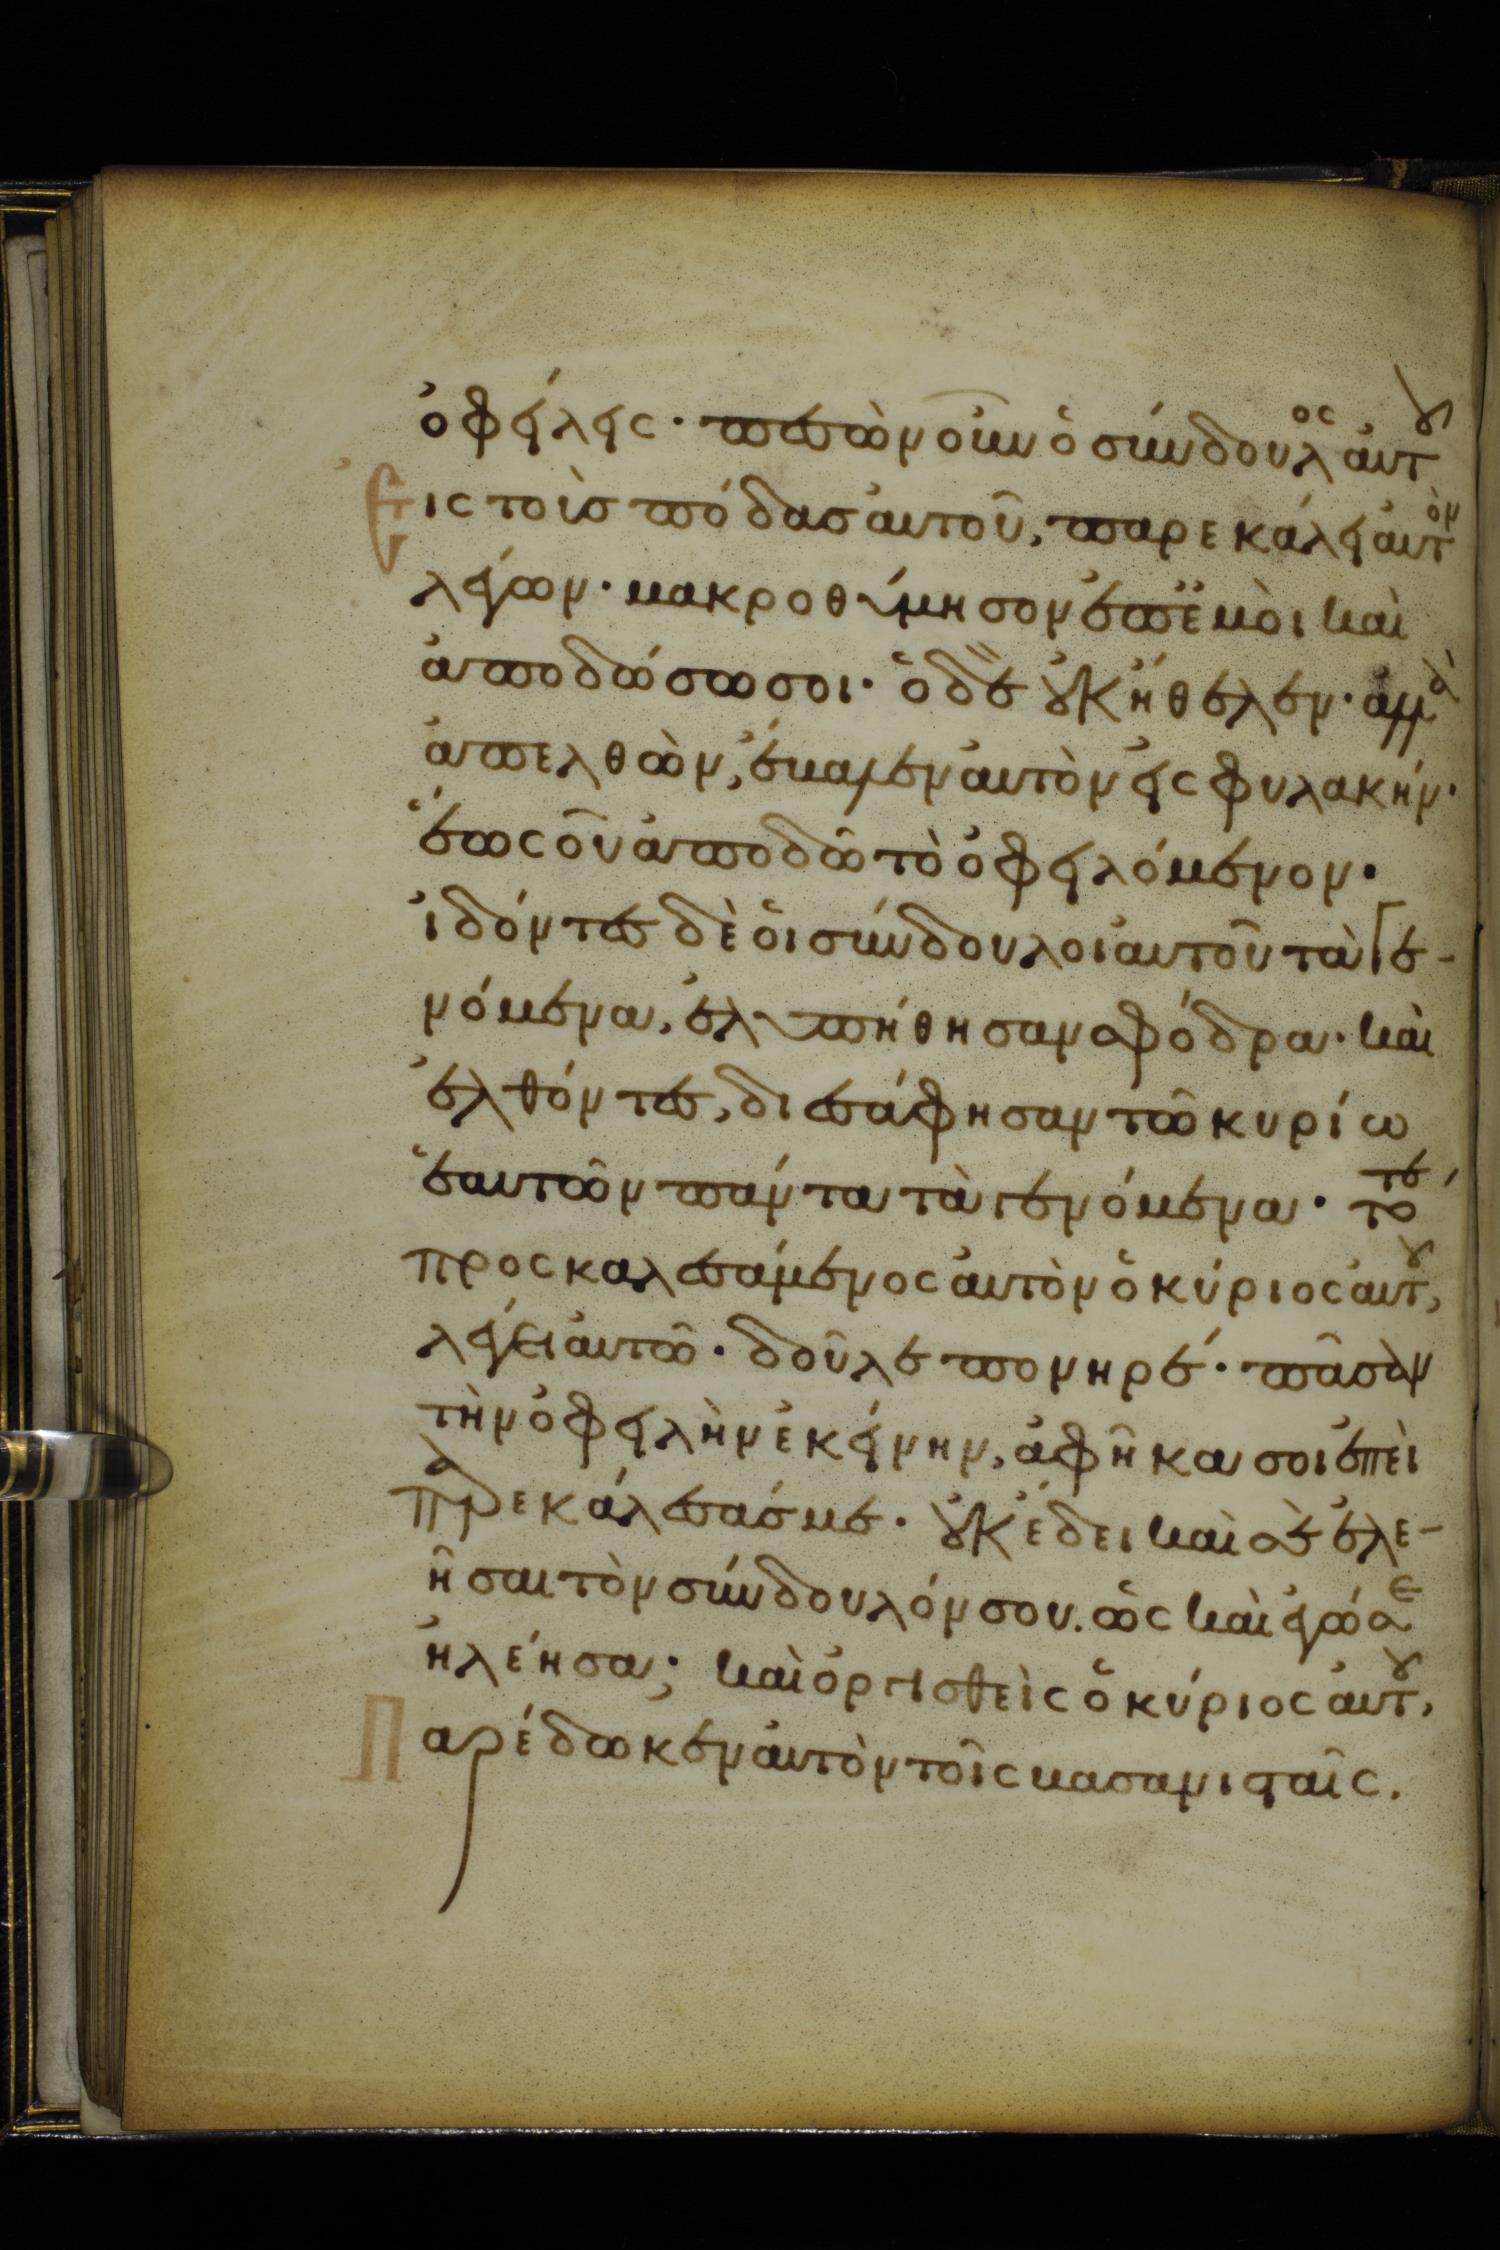 ὀφείλεις· πεσὼν οὖν ὁ σύνδουλος αὐτοῦ
Εἰς τοὺς πόδας αὐτοῦ, παρεκάλει αὐτὸν
λέγων· μακροθύμησον ἐπ ἐμοὶ καὶ
ἀποδώσω σοι· ὁ δὲ οὐκ ἤθελεν· ἀλλὰ
ἀπελθὼν, ἔβαλεν αὐτὸν εἰς φυλακήν·
ἕως οὗ ἀποδῶ τὸ ὀφειλόμενον·
ἰδόντες δὲ οἱ σύνδουλοι αὐτοῦ τὰ γε-
νόμενα, ἐλυπήθησαν σφόδρα· καὶ
ἐλθόντες, διεσάφησαν τῶ κυρίω
ἑαυτῶν πάντα τὰ γενόμενα· τότε
προσκαλεσάμενος αὐτὸν ὁ κύριος αὐτοῦ,
λέγει αὐτῶ· δοῦλε πονηρέ· πᾶσαν
τὴν ὀφειλὴν ἐκείνην, ἀφῆκα σοι ἐπεὶ
παρεκάλεσάς με· οὐκ ἔδει καὶ σὲ ἐλε-
ῆσαι τὸν σύνδουλόν σου. ὡς καὶ ἐγώ σε
ἠλέησα; καὶ ὀργισθεὶς ὁ κύριος αὐτοῦ,
Παρέδωκεν αὐτὸν τοῖς βασανισταῖς.